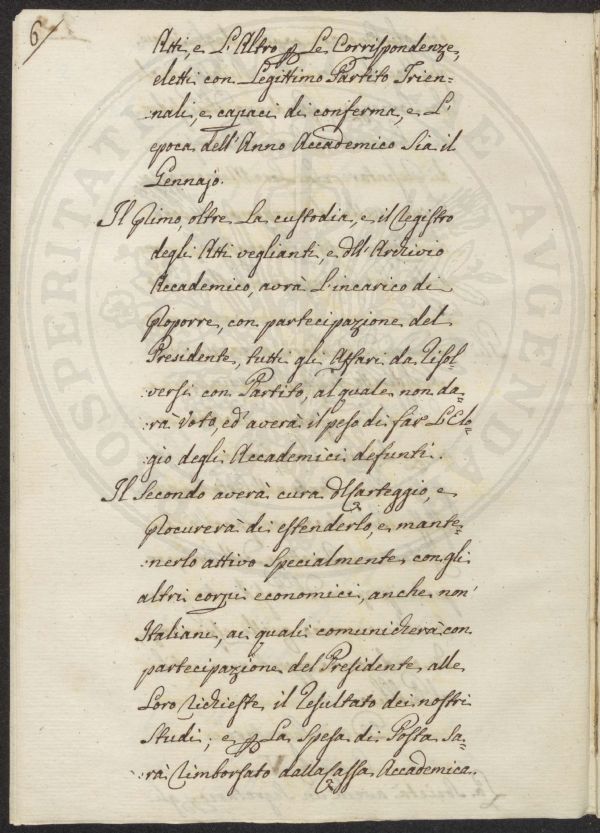 6
Atti, e L'Altro p Le Corrispondenze,
eletti con Legittimo Partito Trien=
:nali, e capaci di conferma, e L'
epoca dell'Anno Accademico Sia il
Gennajo.
Il Primo, oltre La custodia, e il Registro
degli Atti veglianti, e dll'Archivio
Accademico, avrà L'incarico di
Proporre, con partecipazione del
Presidente, tutti gli Affari da Risol=
versi con Partito, al quale non da=
:rà Voto, ed' averà il peso di far L'Elo=
:gio degli Accademici defunti.
Il Secondo averà cura dl Carteggio, e
Procurerà di estenderlo, e mante=
:nerlo attivo Specialmente con gli
altri corpi economici, anche non
Italiani, ai quali comunicherà con
partecipazione del Presidente alle
Loro richieste il Resultato dei nostri
Studi; e p La Spesa di Posta Sa=
:rà Rimborsato dalla Cassa Accademica.
PROSPERITATI AUGENDAE